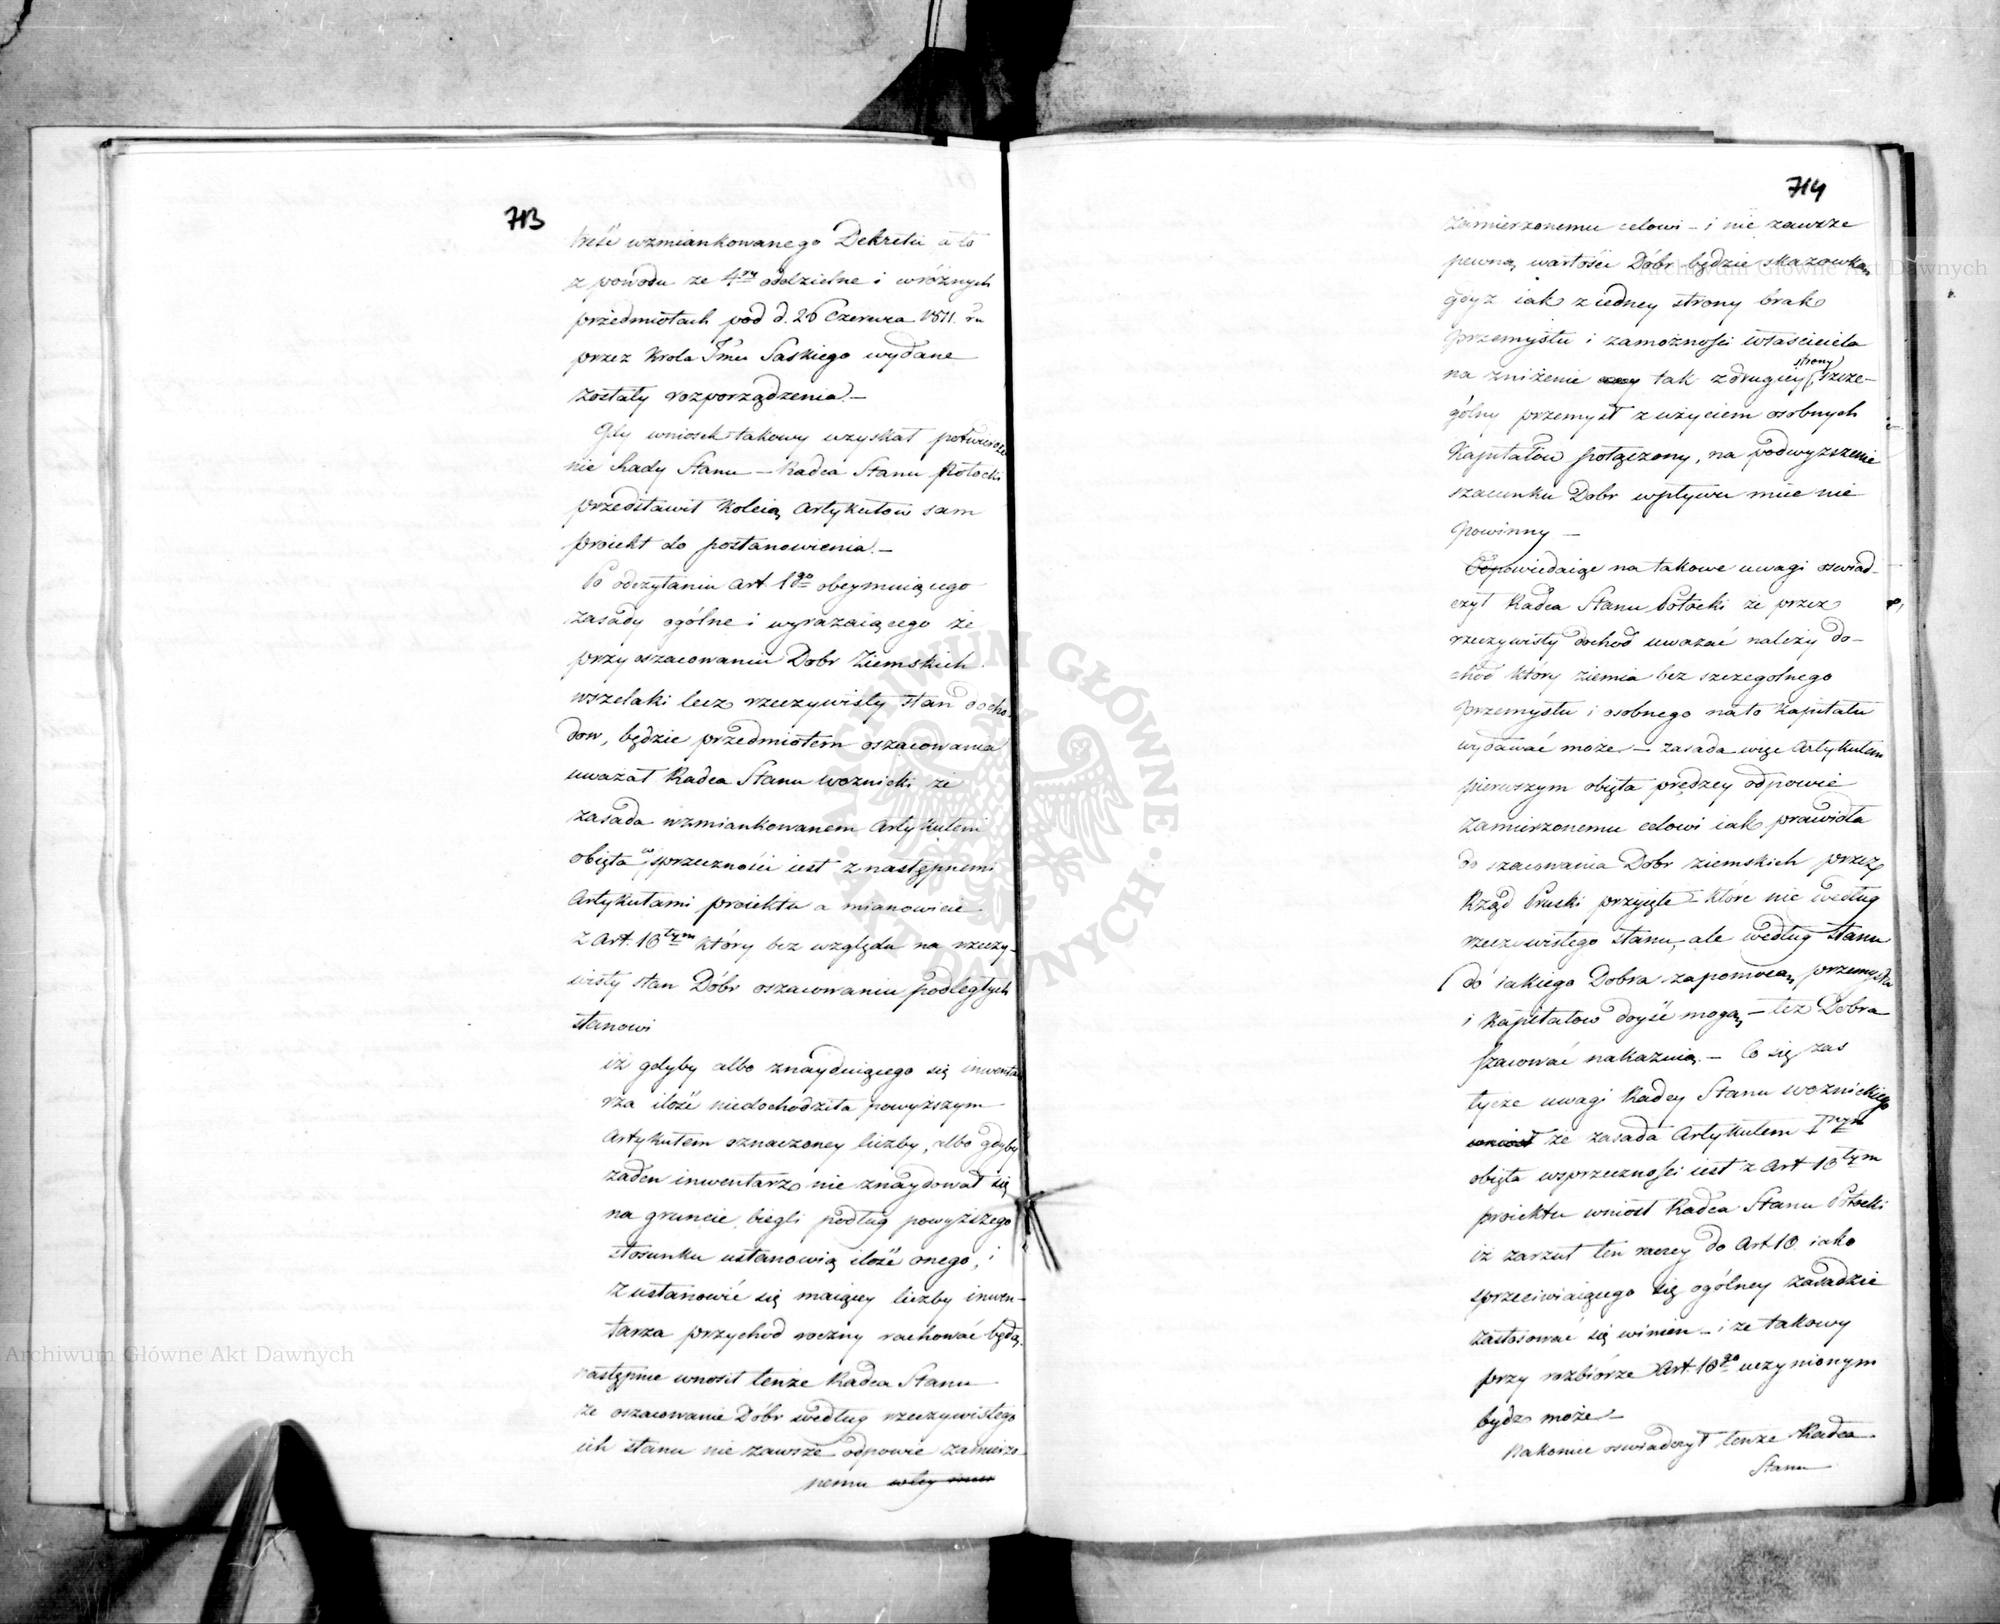 713
treść wzmiankowanego Dekretu a to
z powodu ze 4ry oddzielne i w różnych
przedmiotach pod d. 26 Czerwca 1811. ru
przez Krola Jmci Saskiego wydane
zostały rozporządzenia. —
Gdy wniosek takowy uzyskał potwierdze
nie Rady Stanu — Radca Stanu Potocki
przedstawił koleią Artykułow sam
proiekt do postanowienia. —
Po odczytaniu Art. 1go obeymuiącego
zasady ogólne i wyrazaiącego że
przy oszacowaniu Dobr Ziemskich
wszelaki lecz rzeczywisty stan docho-
dow, będzie przedmiotem oszacowania
uważał Radca Stanu Woznicki że
zasada wzmiankowanem Artykułem
obięta w sprzeczności iest z następnemi
Artykułami proiektu a mianowicie
z Art. 10tym który bez względu na rzeczy-
wisty stan Dóbr oszacowaniu podległych
stanowi
iż gdyby albo znayduiącego się inwenta
rza ilość niedochodziła powyższym
Artykułem oznaczoney liczby, albo gdyby
żaden inwentarz nie znaydował się
na gruncie, biegli podług powyższego
stosunku ustanowią ilość onego, i
z ustanowić się maiącey liczby inwen-
tarza przychod roczny rachować będą.
następnie wnosił tenże Radca Stanu
że oszacowanie Dóbr według rzeczywistego
ich stanu nie zawsze odpowie zamierzo
nemu
714
zamierzonemu celowi — i nie zawsze
pewną wartości Dóbr będzie skazowką
gdyz iak z iedney strony brak
przemysłu i zamożności właściciela
na zniżenie tak z drugiey strony szcze-
gólny przemysł z użyciem osobnych
Kapitałow połączony, na podwyższenie
szacunku Dobr wpływu mieć nie
powinny —
Odpowiedaiąc na takowe uwagi oswiad-
czył Radca Stanu Potocki że przez
rzeczywisty dochod uwazać należy do-
chod który ziemia bez szczegolnego
przemysłu i osobnego na to Kapitału
wydawać może — zasada więc Artykułem
pierwszym obięta prędzey odpowie
zamierzonemu celowi iak prawidła
do szacowania Dobr ziemskich przez
Rząd Pruski przyięte — które nie według
rzeczywistego stanu, ale według stanu
do iakiego Dobra zapomocą przemysłu
i Kapitałow doyść mogą — też Dobra
szacować nakazuią. — Co się zas
tycze uwagi Radcy Stanu Woznickiego
że zasada Artykułem 1wszym
obięta w sprzeczności iest z Art 10tym
proiektu wniosł Radca Stanu Potocki
iż zarzut ten raczey do Art 10. iako
sprzeciwiaiącego się ogólney zasadzie
zastosować się winien — i że takowy
przy rozbiorze Art. 10go uczynionym
bydz może —
Nakoniec oswiadczył tenże Radca
Stanu
Archiwum Główne Akt Dawnych
Archiwum Główne Akt Dawnych
ARCHIWUM GŁÓWNE AKT DAWNYCH